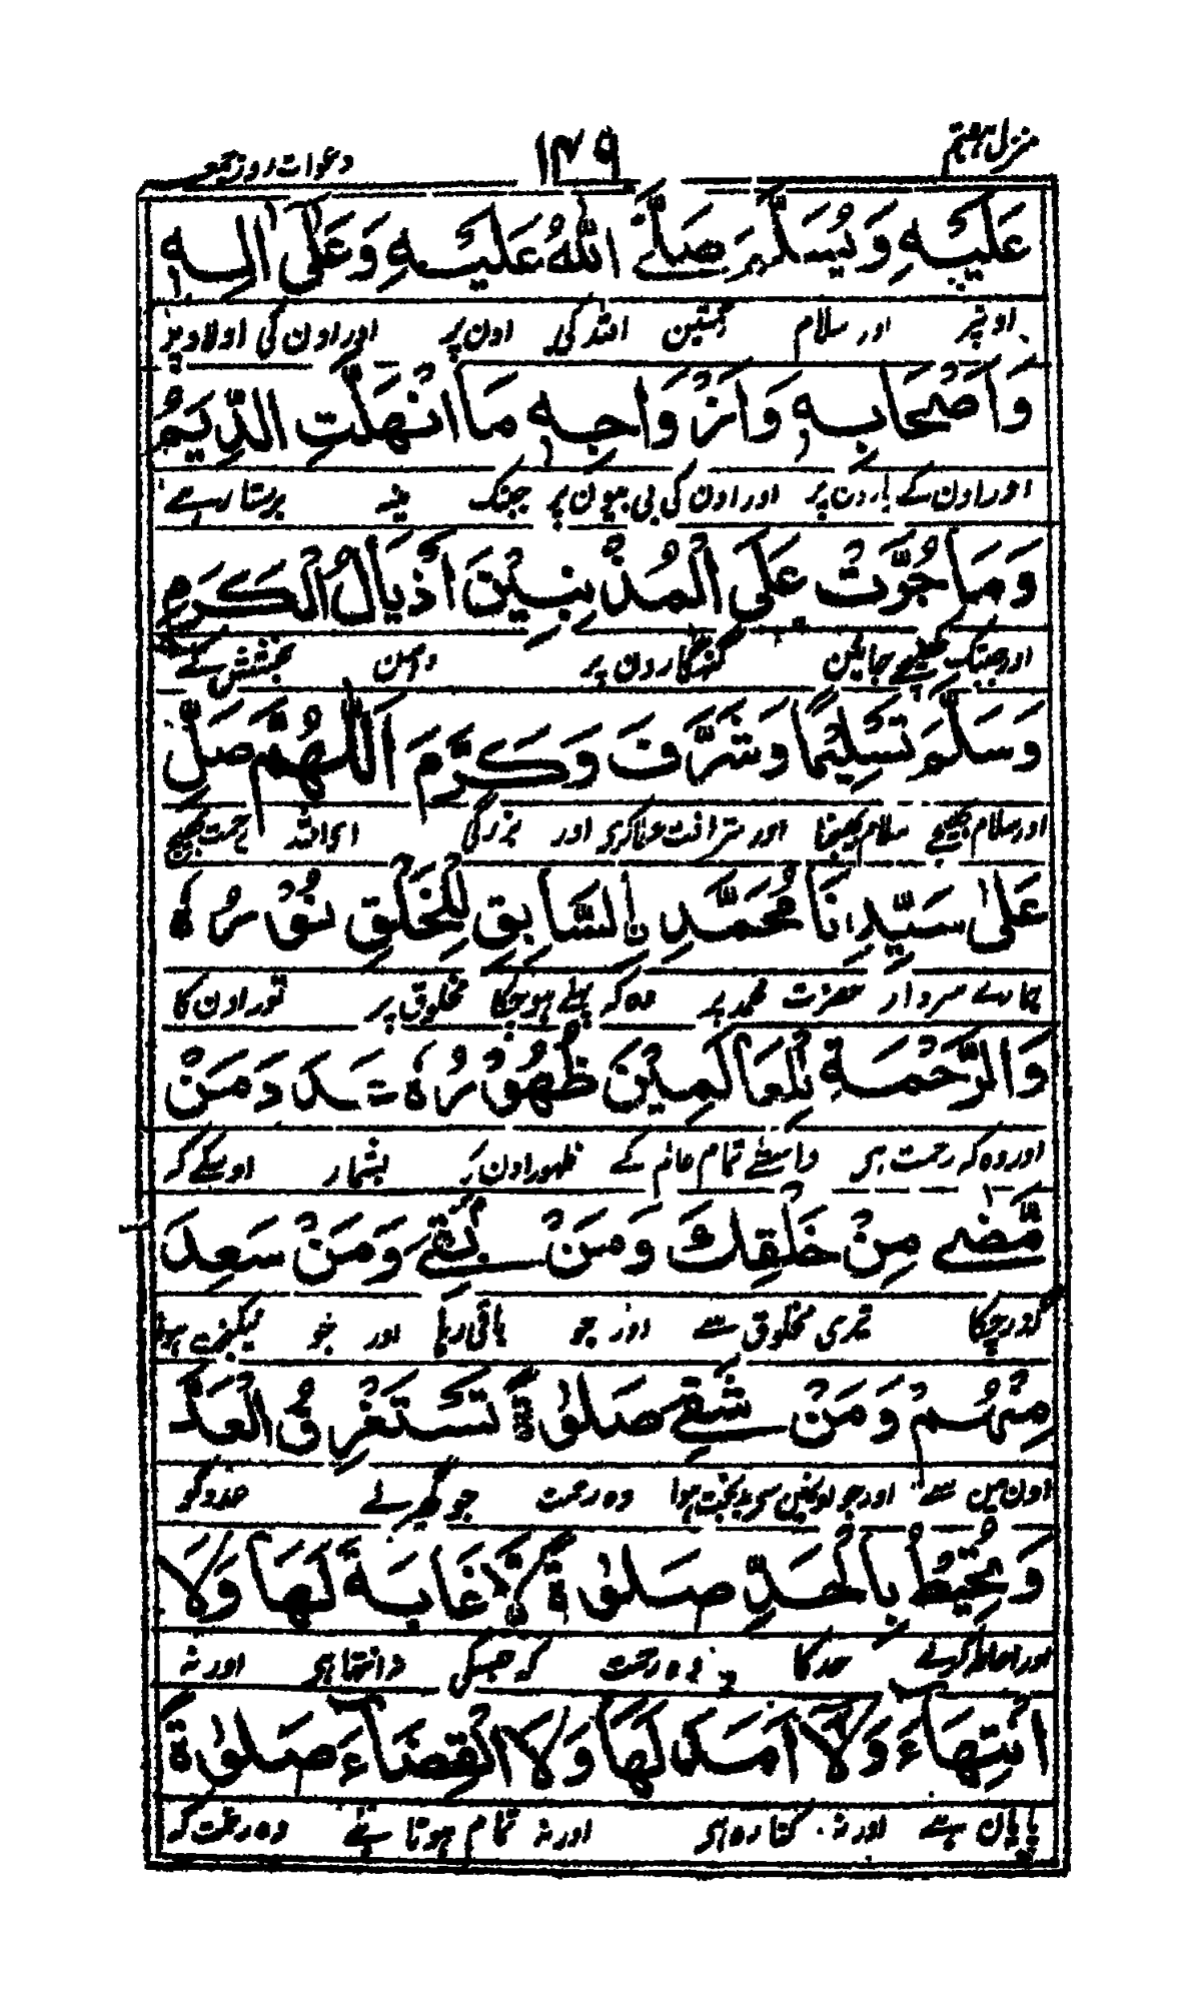 منزل ہفتم ۱۷۹ دعوات روز جمعہ
عَلَيْهِ وَيُسَلَّمَ صَلَّى اللّٰهُ عَلَيْهِ وَعَلٰى اٰلِهٖ
اونپر اور سلام رحمتین اللہ کی اون پر اور اون کی اولاد پر
وَاَصْحَابِهٖ وَاَزْوَاجِهٖ مَا انْهَلَّتِ الدِّيَمُ
اور اون کے یارون پر اور اون کی بی بیون پر جبتک مینہ برستا رہے
وَمَا جُرَّتْ عَلَى الْمُذْنِبِيْنَ اَذْيَالُ الْكَرَمِ
اور جبتک کھینچے جایئن گنہگارون پر دامن بخشش کے
وَسَلَّمَ تَسْلِيْمًا وَشَرَّفَ وَكَرَّمَ اَللّٰهُمَّ صَلِّ
اور سلام بھیجے سلام بھیجنا اور شرافت عطا کری اور بزرگی ای اللہ رحمت بھیج
عَلٰى سَيِّدِنَا مُحَمَّدِ نِ السَّابِقِ لِلْخَلْقِ نُوْرُهٗ
ہمارے سردار حضرت محمد پر وہ کہ پہلے ہو چکا مخلوق پر نور اون کا
وَالرَّحْمَةِ لِلْعَالَمِيْنَ ظُهُوْرُهٗ عَدَدَ مَنْ
اور وہ کہ رحمت ہی واسطے تمام عالم کے ظہور اون کا بشمار اوسکے کہ
مَّضٰى مِنْ خَلْقِكَ وَمَنْ بَقِيَ وَمَنْ سَعِدَ
گذر چکا تیری مخلوق سے اور جو باقی رہا اور جو نیکبخت ہوا
مِنْهُمْ وَمَنْ شَقِيَ صَلٰوةً تَسْتَغْرِقُ الْعَدَّ
اون مین سے اور جو اونمین سی بدبخت ہوا وہ رحمت جو گھیرلے عدد کو
وَتُحِيْطُ بِالْحَدِّ صَلٰوةً لَّا غَايَةَ لَهَا وَلَا
اور احاطہ کرلے حد کا وہ رحمت کہ جسکی نہ انتہا ہی اور نہ
انْتِهَآءَ وَلَا اَمَدَ لَهَا وَلَا انْقِضَآءَ صَلٰوةً
پایان ہے اور نہ کنارہ ہی اور نہ تمام ہوتا ہے وہ رحمت کہ